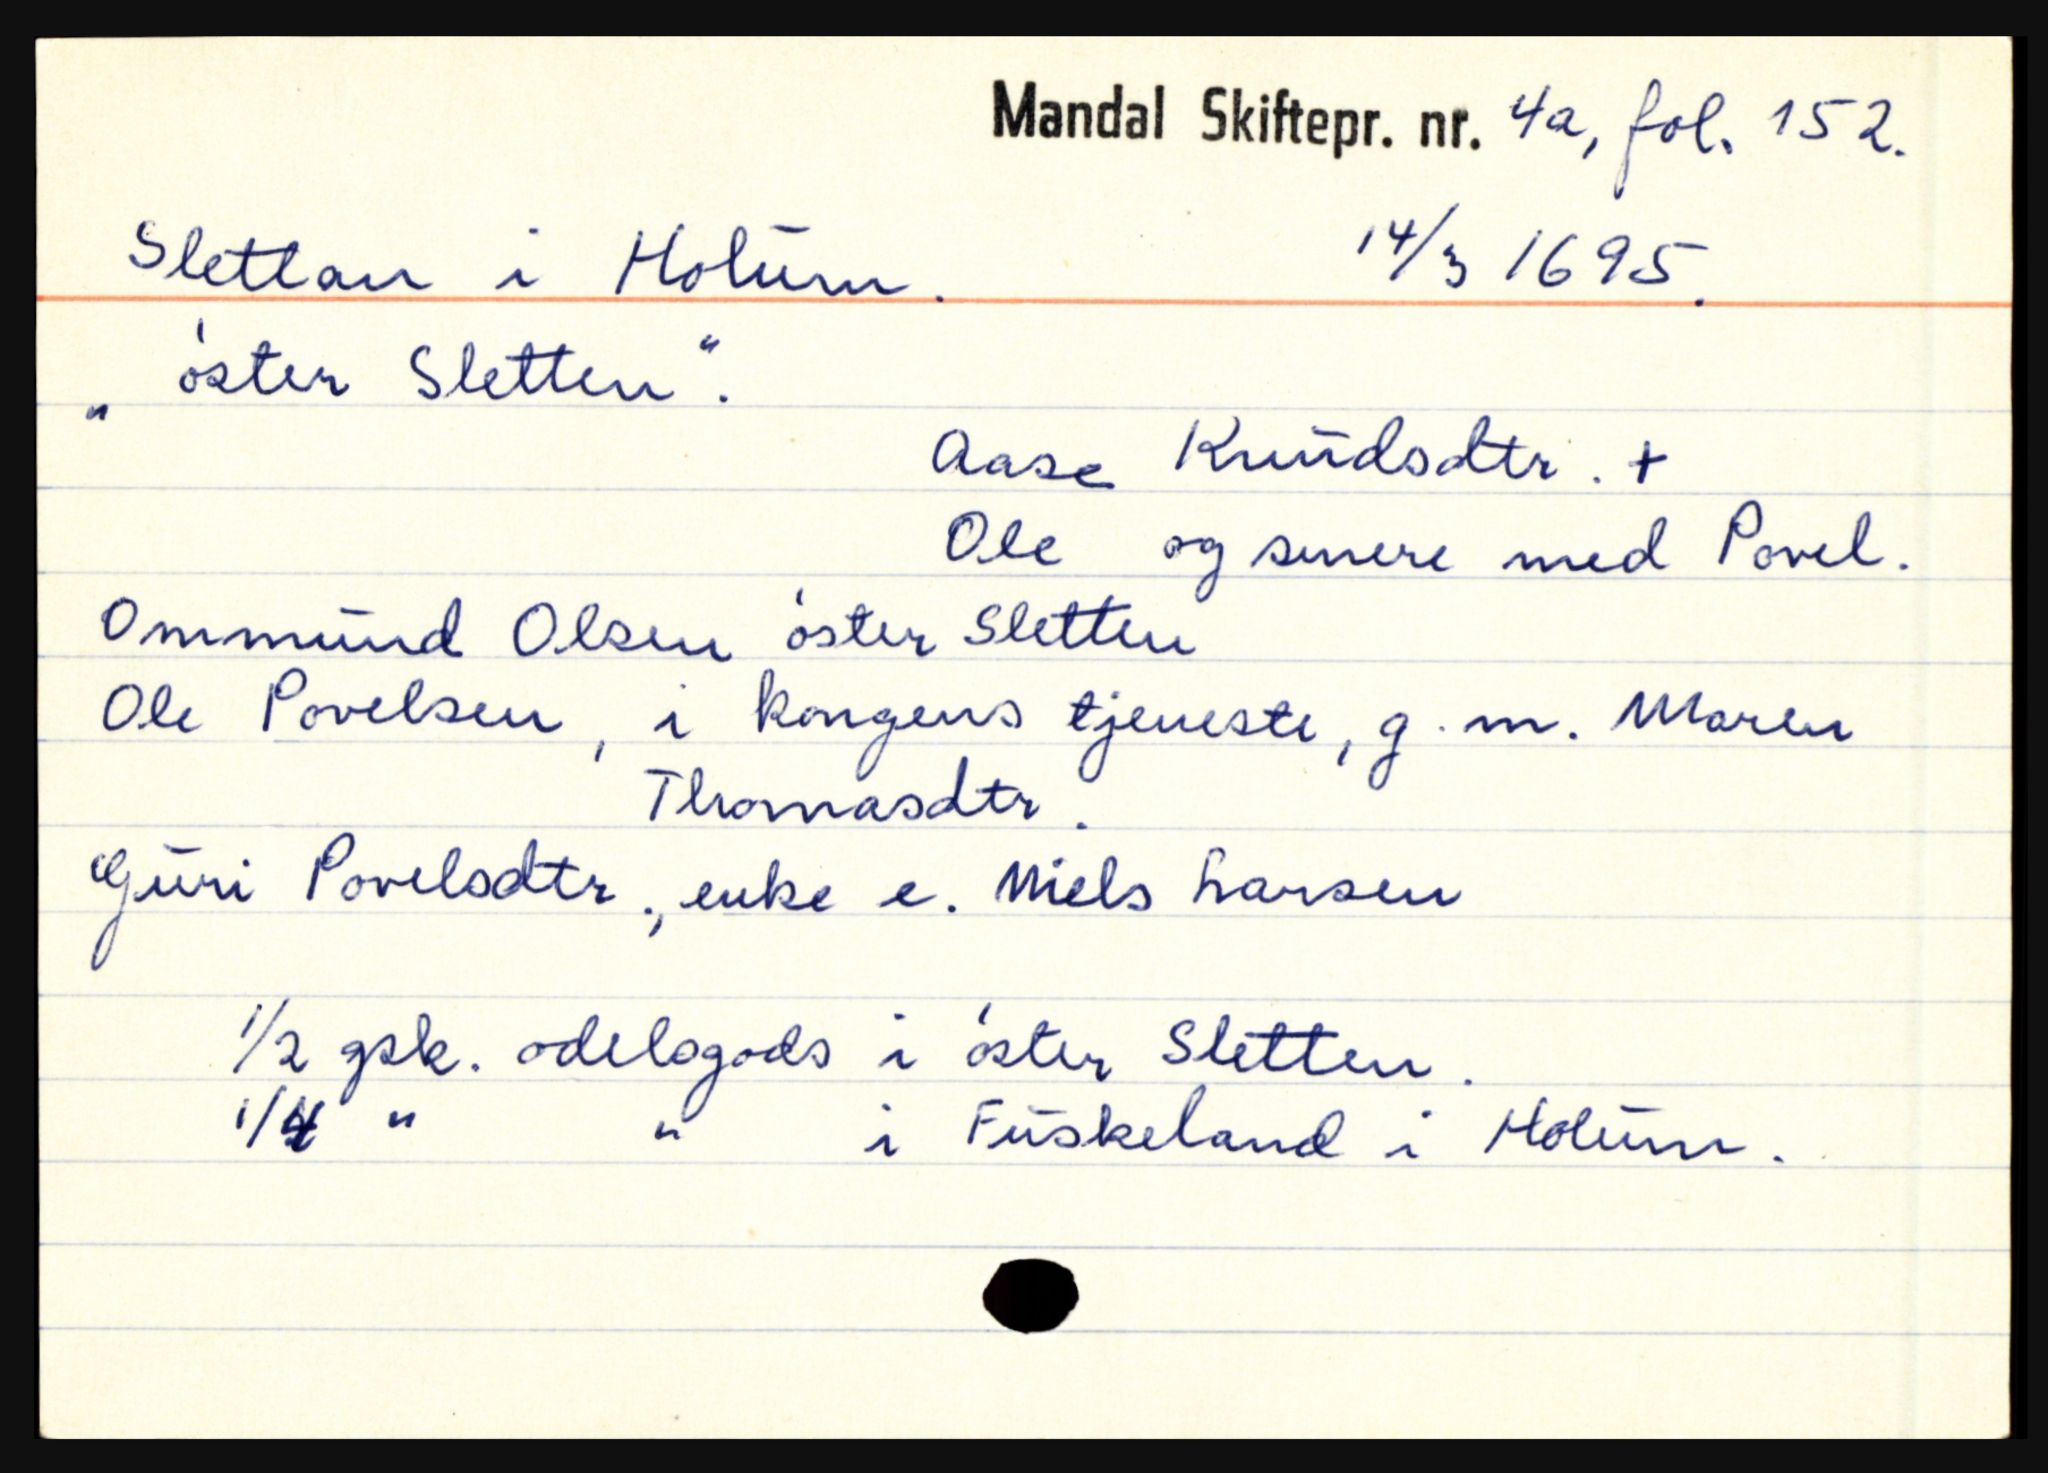 Mandal Skiftepr. nr. 4a, fol. 152.
Slettan i Holum. 14/3 1695.
„ öster Sletten".
Aase Knudsdtr. +
Ole og senere med Povel.
Ommund Olsen öster Sletten
Ole Povelsen, i kongens tjeneste, g.m. Maren
Thomasdtr.
Guri Povelsdtr., enke e. Niels Larsen
1/2 gsk. odelsgods i öster Sletten.
1/4 " " i Fuskeland i Holum.